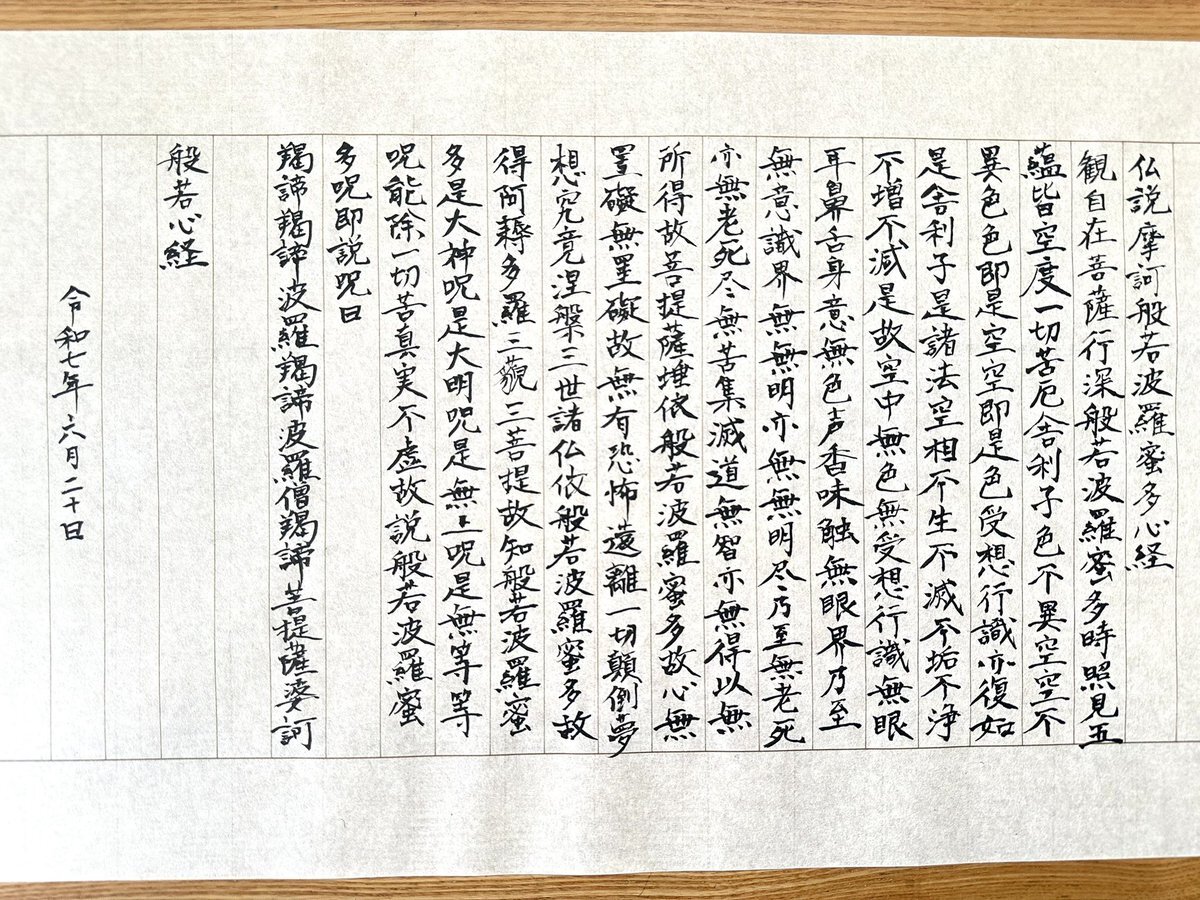 仏説摩訶般若波羅蜜多心経
観自在菩薩行深般若波羅蜜多時照見五
蘊皆空度一切苦厄舎利子色不異空空不
異色色即是空空即是色受想行識亦復如
是舎利子是諸法空相不生不滅不垢不浄
不増不減是故空中無色無受想行識無眼
耳鼻舌身意無色声香味触無眼界乃至
無意識界無無明亦無無明尽乃至無老死
亦無老死尽無苦集滅道無智亦無得以無
所得故菩提薩埵依般若波羅蜜多故心無
罣礙無罣礙故無有恐怖遠離一切顛倒夢
想究竟涅槃三世諸仏依般若波羅蜜多故
得阿耨多羅三藐三菩提故知般若波羅蜜
多是大神呪是大明呪是無上呪是無等等
呪能除一切苦真実不虚故説般若波羅蜜
多呪即説呪曰
羯諦羯諦波羅羯諦波羅僧羯諦菩提薩婆訶
般若心経
令和七年六月二十日